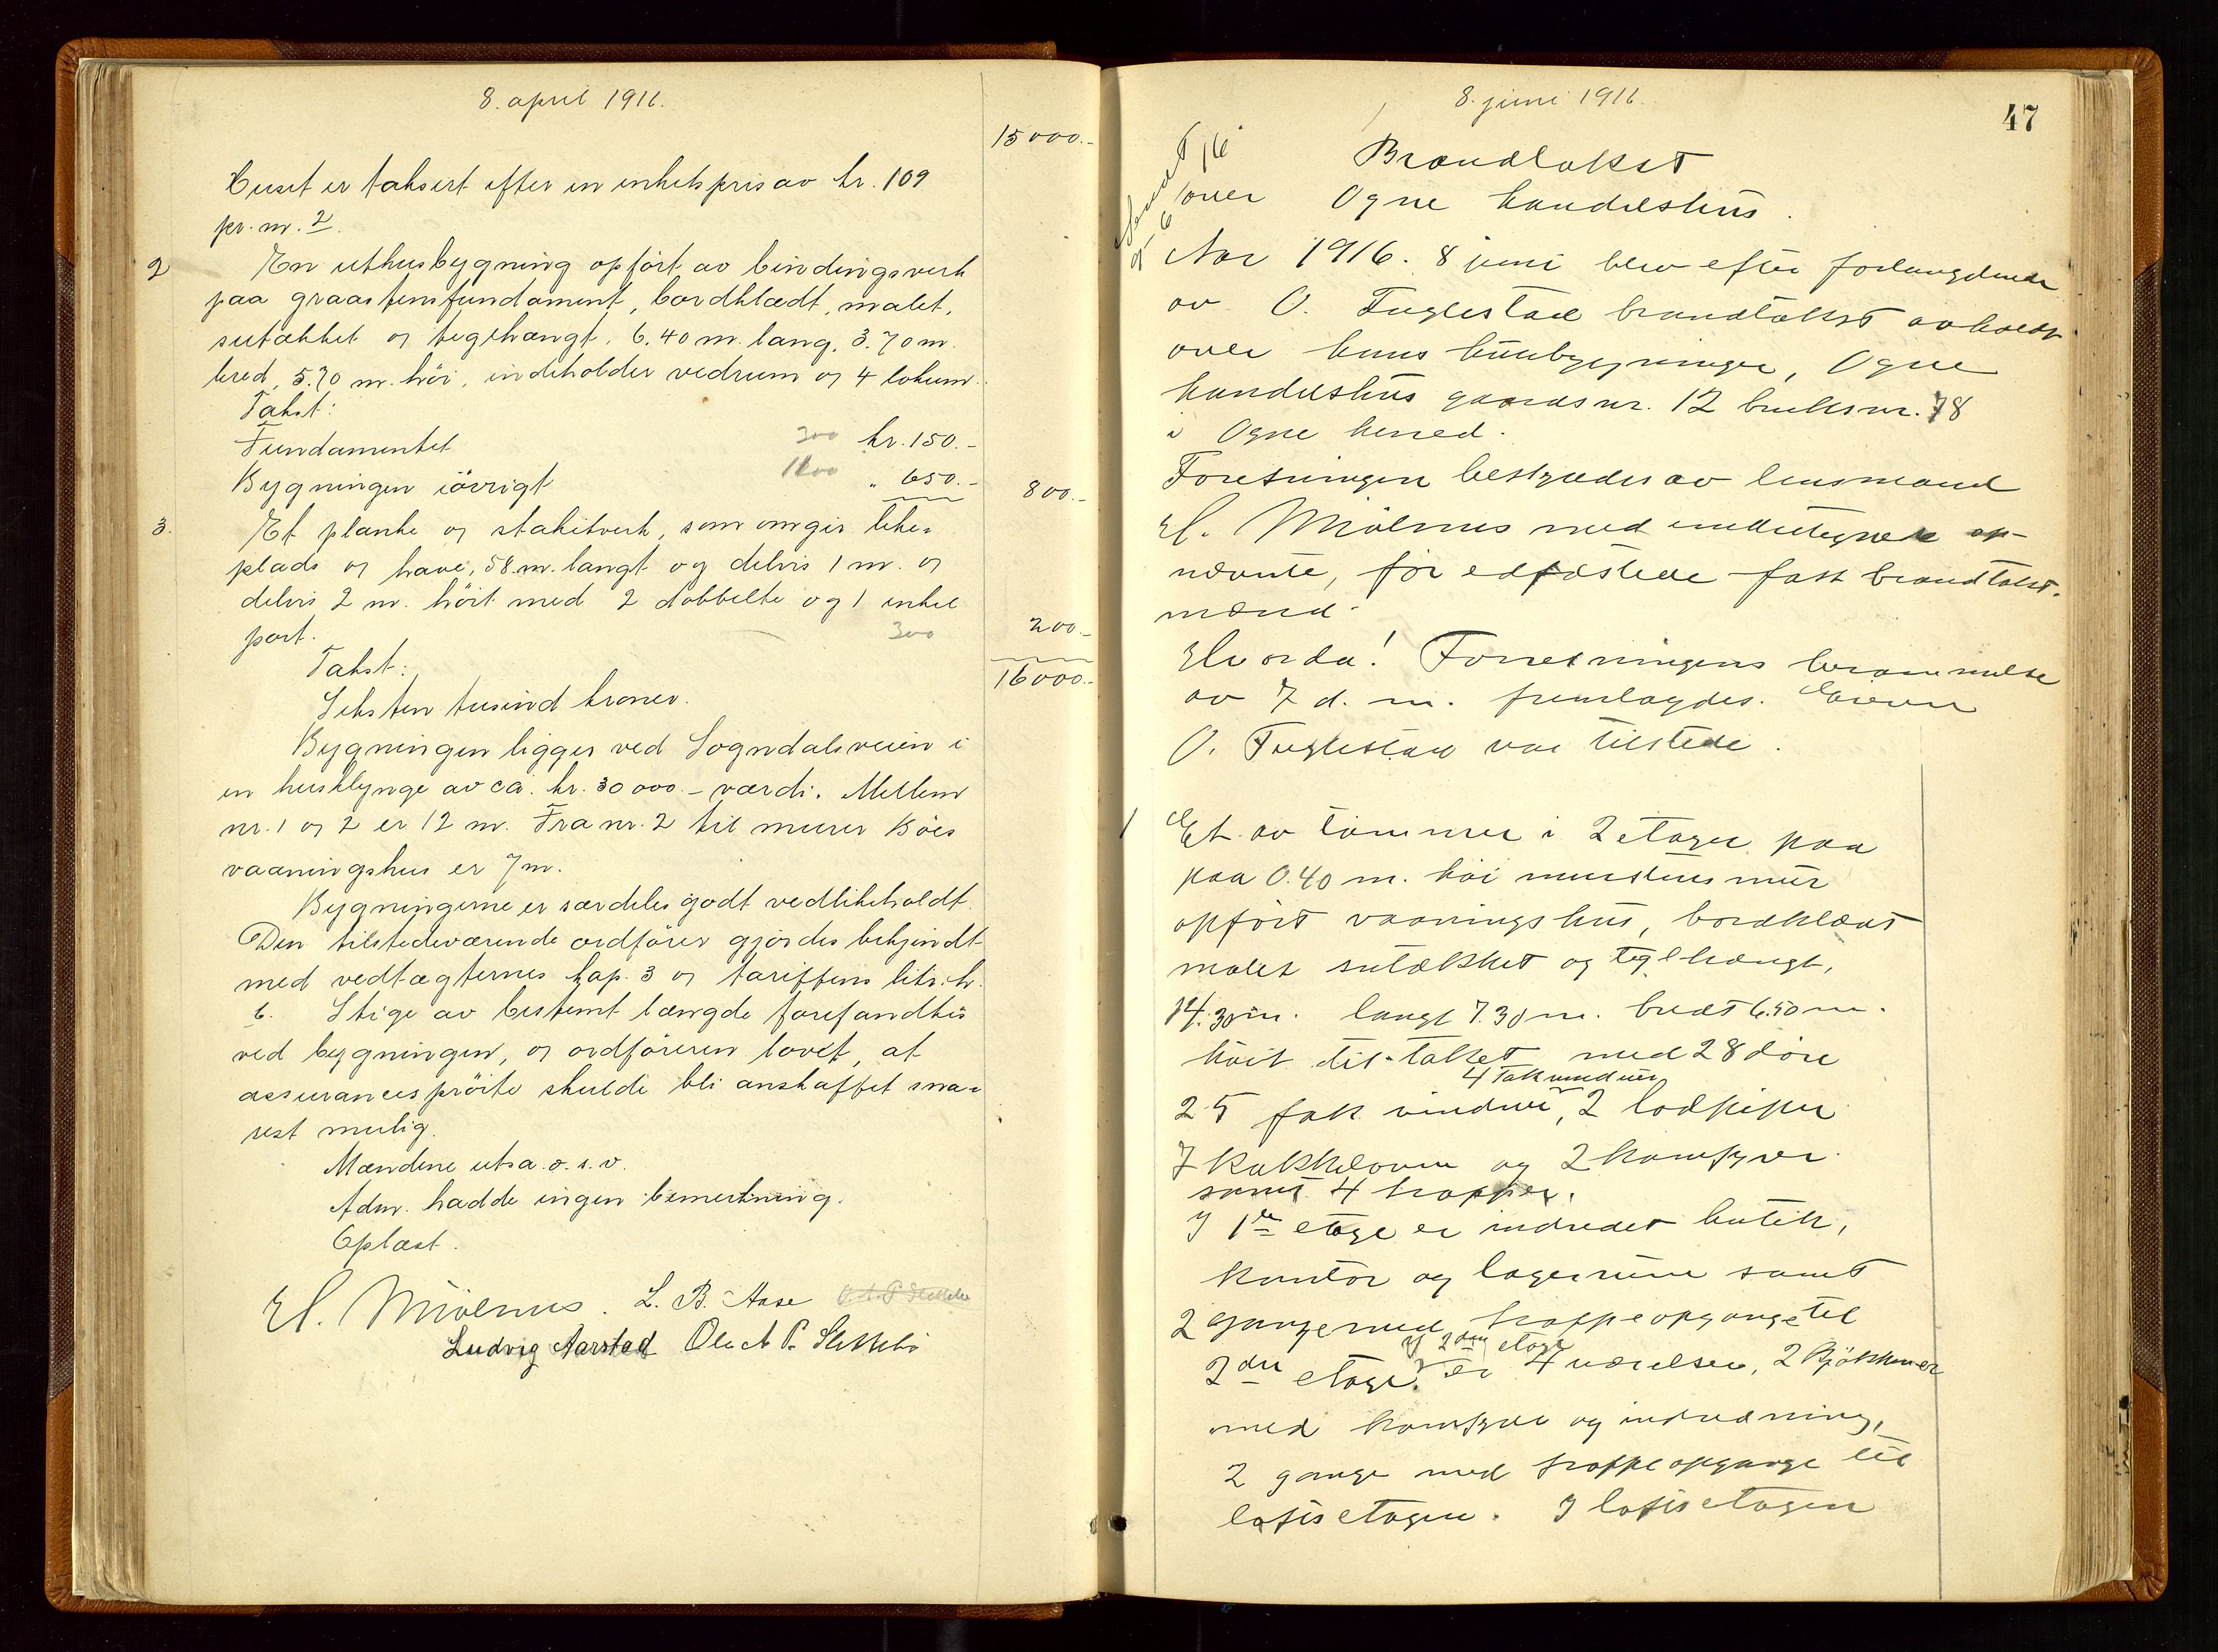 8. april 1916.
15000.-
Huset er taksert efter en enhetspris av kr. 109
pr. m.2.
2 En uthusbygning opført av bindingsverk
paa graastensfundament, bordklædt, malet,
sutækket og teglhængt, 6.40 m. lang, 3.70 m.
bred, 5.70 m. høi, indeholder vedrum og 4 lokum.
Takst:
Fundamentet 300 kr. 150.-
Bygningen iøvrigt 1200 " 650.- 800.-
3. Et planke og stakitverk, som omgir leke-
plads og have, 58 m. langt og delvis 1 m. og
delvis 2 m. høit med 2 dobbelte og 1 enkel
port. 300 200.-
Takst: 16000.-
Seksten tusind kroner.
Bygningen ligger ved Sogndalsveien i
en husklynge av ca. kr. 30 000.- værdi. Mellem
nr. 1 og 2 er 12 m. Fra nr. 2 til murer Böes
vaaningshus er 7 m.
Bygningerne er særdeles godt vedlikeholdt.
Den tilstedeværende ordfører gjørdes bekjendt
med vedtægternes kap. 3 og tariffens litr. h.
6. Stige av bestemt længde forefandtes
ved bygningen, og ordføreren lovet, at
assurancesprøite skulde bli anskaffet sna-
rest mulig.
Mændene utsa o. s. v.
Adm. hadde ingen bemerkning.
Oplæst.
H. Miölnus. L. B. Aase
Ludvig Aarstad Ole A P. Slettebö
8. juni 1916.
47
9/6 16
Brandtakst
over Ogne handelshus.
Aar 1916. 8 juni blev efter forlangende
av O. Fuglestad brandtakst avholdt
over hans husbygninger, Ogne
handelshus gaardsnr. 12 bruksnr. 78
i Ogne herred.
Forretningen bestyredes av lensmand
H. Miölnus med undertegnede op-
nævnte, før edfæstede fast brandtakst-
mænd.
Hvorda! Forretningens berammelse
av 7 d. m. fremlagdes. Eieren
O. Fuglestad var tilstede.
1 Et av tømmer i 2 etager paa
paa 0.40 m. høi murstens mur
opført vaaningshus, bordklædt
malet sutækket og teglhængt,
14.30 m. langt 7.30 m. bredt 6.50 m.
høit til taket med 28 döre
4 takvinduer
25 fak vinduer, 2 lodpiper
7 kakkelovne og 2 komfyrer
samt 4 trapper.
I 1ste etage er indredet butik,
kontor og lagerrum samt
2 gange med trappeopgange til
I 2den etage
2den etage. er 4 værelser, 2 Kjøkkener
med komfyre og indredning,
2 gange med trappeopgange til
loftsetagen. I loftsetagen